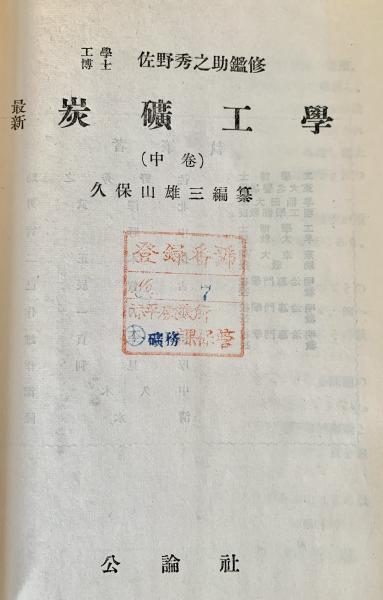 工學博士 佐野秀之助鑑修
最新 炭礦工學
(中卷)
久保山雄三編纂
登録番號
7
礦務
課保管
公論社